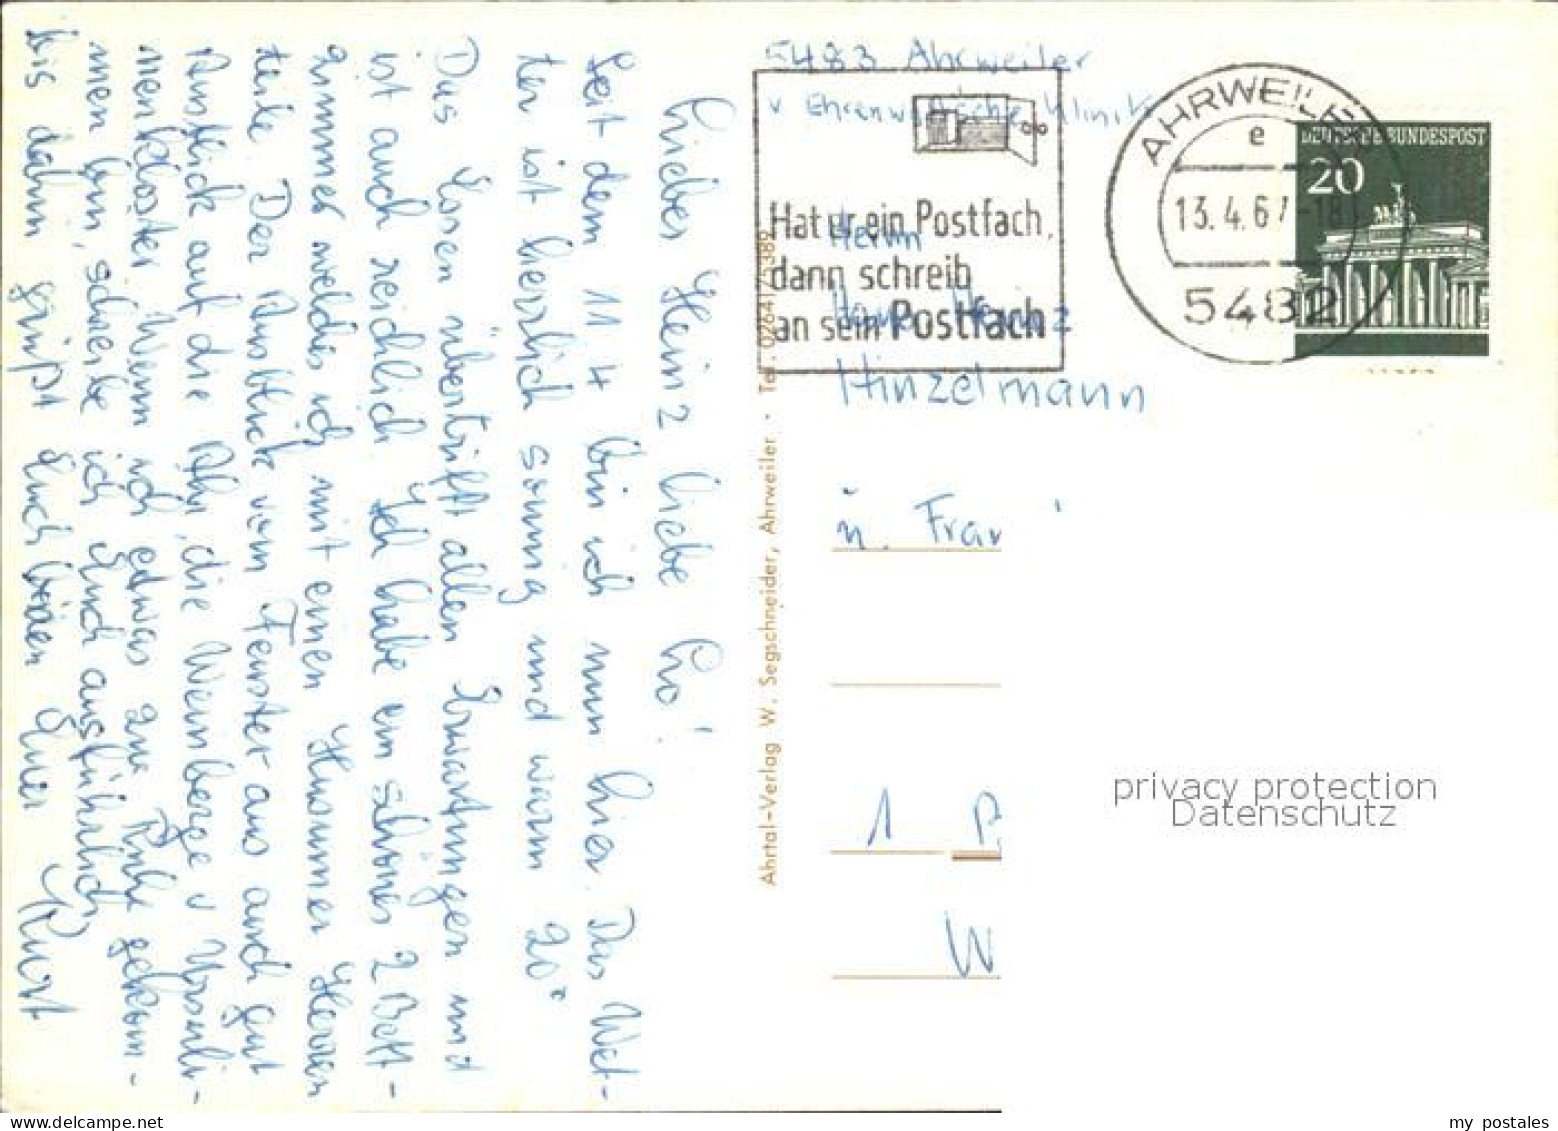 Lieber Heinz liebe Lo!
Seit dem 11 4 bin ich nun hier. Das Wet-
ter ist herrlich sonnig und warm 20°
Das Essen übertrifft allen Erwartungen und
ist auch reichlich Ich habe ein schönes 2 Bett-
zimmer welches ich mit einen Herren
teile. Der Ausblick vom Fenster aus auch gut
Ausblick auf die Ahr, die Weinberge u Ursuli-
nenkloster Wenn ich etwas zur Ruhe gekom-
men bin, schreibe ich Euch ausführlich,
bis dahin grüßt Euch Euer Kurt
5483 Ahrweiler
Ehrenwall'sche Klinik
Hat er ein Postfach,
dann schreib
an sein Postfach
AHRWEILER
e
13.4.67-18
5482
DEUTSCHE BUNDESPOST
20
Herrn
Heinz
Hinzelmann
u. Frau
1 P
W
Ahrtal-Verlag W. Segschneider, Ahrweiler · Tel. 02641/5389
privacy protection
Datenschutz
my postales